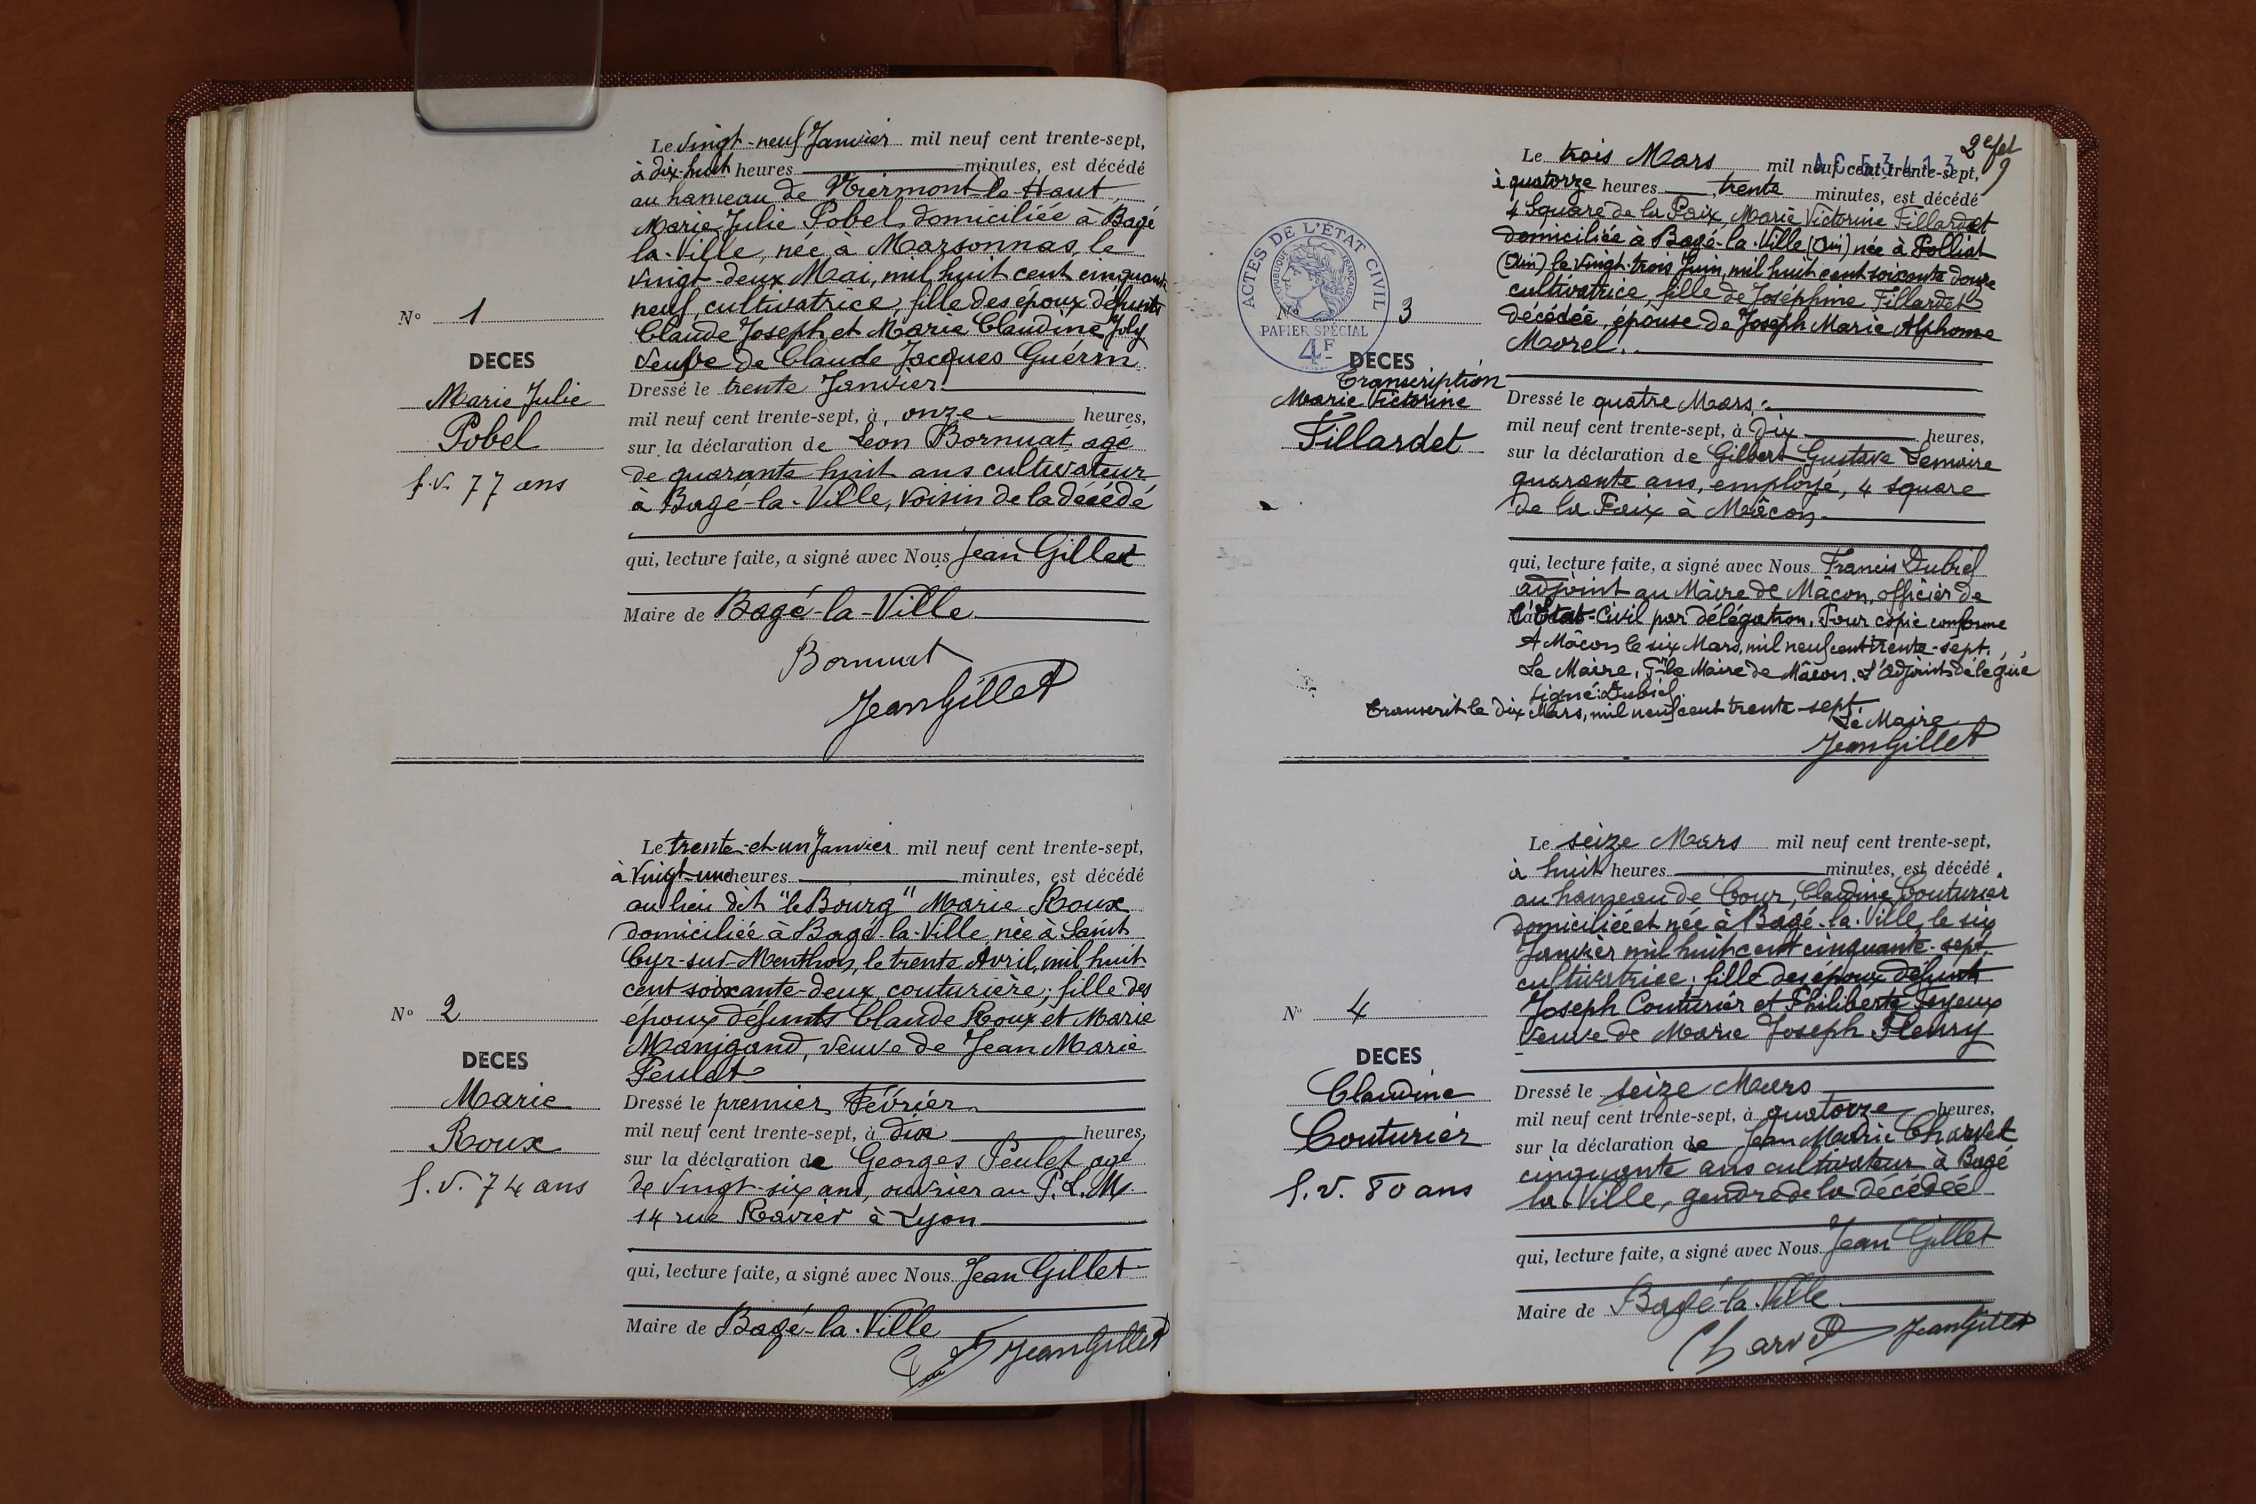 Le vingt-neuf Janvier mil neuf cent trente-sept,
à dix-huit heures minutes, est décédé
au hameau de Viermont-le-Haut
Marie Julie Pobel domiciliée à Bagé
la-Ville, née à Marsonnas, le
vingt-deux Mai, mil huit cent cinquante
neuf, cultivatrice, fille des époux défunts
Claude Joseph et Marie Claudine Joly
veuve de Claude Jacques Guérin
N° 1
DECES
Marie Julie
Pobel
f.v. 77 ans
Dressé le trente Janvier
mil neuf cent trente-sept, à onze heures,
sur la déclaration de Léon Bornuat, agé
de quarante huit ans cultivateur
à Bagé-la-Ville, voisin de la décédé
qui, lecture faite, a signé avec Nous Jean Gillet
Maire de Bagé-la-Ville
Bornuat
Jean Gillet
Le trente-et-un Janvier mil neuf cent trente-sept,
à vingt-une heures minutes, est décédé
au lieu dit "le Bourg" Marie Roux
domiciliée à Bagé-la-Ville, née à Saint
Cyr-sur-Menthon, le trente Avril, mil huit
cent soixante-deux, couturière; fille des
époux défunts Claude Roux et Marie
Manigand, veuve de Jean Marie
Peulet
N° 2
DECES
Marie
Roux
f.v. 74 ans
Dressé le premier Février
mil neuf cent trente-sept, à dix heures,
sur la déclaration de Georges Peulet, agé
de vingt-six ans, ouvrier au P.L.M
14 rue Ravier à Lyon
qui, lecture faite, a signé avec Nous Jean Gillet
Maire de Bagé-la-Ville
Jean Gillet
2e fet
9
AC 53413
Le trois Mars mil neuf cent trente-sept,
à quatorze heures trente minutes, est décédé
4 Square de la Paix, Marie Victorine Fillardet
domiciliée à Bagé-la-Ville (Ain) née à Polliat
(Ain) le vingt-trois Juin, mil huit cent soixante douze
cultivatrice, fille de Joséphine Fillardet
décédée, épouse de Joseph Marie Alphonse
Morel.
ACTES DE L'ÉTAT CIVIL
RÉPUBLIQUE FRANÇAISE
PAPIER SPÉCIAL
4F
N° 3
DECES
Transcription
Marie Victorine
Fillardet
Dressé le quatre Mars
mil neuf cent trente-sept, à Dix heures,
sur la déclaration de Gilbert Gustave Lemoire
quarante ans, employé, 4 square
de la Paix à Mâcon
qui, lecture faite, a signé avec Nous Francis Dubiel
adjoint au Maire de Mâcon, officier de
l'Etat-Civil par délégation. Pour copie conforme
A Mâcon le six Mars, mil neuf cent trente-sept.
Le Maire, Pr le Maire de Mâcon. L'adjoint délégué
signé: Dubiel.
Transcrit le dix Mars, mil neuf cent trente-sept
Le Maire
Jean Gillet
Le seize Mars mil neuf cent trente-sept,
à huit heures minutes, est décédé
au hameau de Cour, Claudine Couturier
domiciliée et née à Bagé-la-Ville, le six
Janvier mil huit cent cinquante-sept
cultivatrice; fille des époux défunts
Joseph Couturier et Philiberte Joyeux
veuve de Marie Joseph Fleury
N° 4
DECES
Claudine
Couturier
f.v. 80 ans
Dressé le seize Mars
mil neuf cent trente-sept, à quatorze heures,
sur la déclaration de Jean Marie Charvet
cinquante ans cultivateur à Bagé
la Ville, gendre de la décédée
qui, lecture faite, a signé avec Nous Jean Gillet
Maire de Bagé-la-Ville
Charvet Jean Gillet